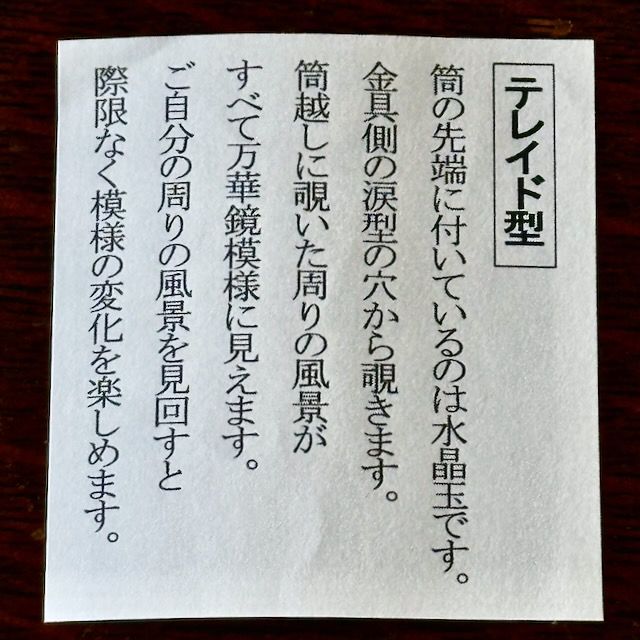 テレイド型
筒の先端に付いているのは水晶玉です。
金具側の涙型の穴から覗きます。
筒越しに覗いた周りの風景が
すべて万華鏡模様に見えます。
ご自分の周りの風景を見回すと
際限なく模様の変化を楽しめます。